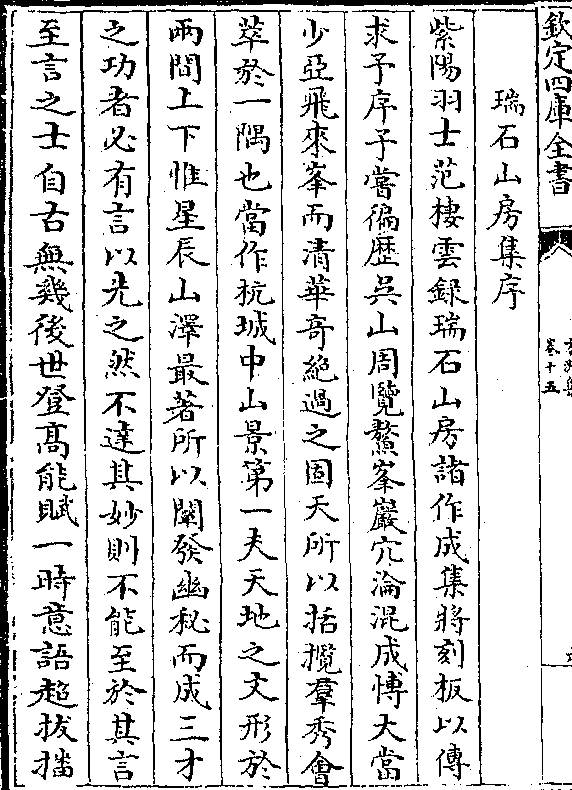 欽定四庫全書
卷十五
瑞石山房集序
紫陽羽士范棲雲録瑞石山房諸作成集將刻板以傳
求予序予嘗徧歴吳山周覽鰲峯巖穴淪混成博大當
少亞飛來峯而清華竒絶過之固天所以括攬羣秀會
萃於一隅也當作杭城中山景第一夫天地之文形於
兩間上下惟星辰山澤最著所以闡發幽秘而成三才
之功者必有言以光之然不達其妙則不能至於其言
至言之士自古無幾後世登髙能賦一時意語超拔播